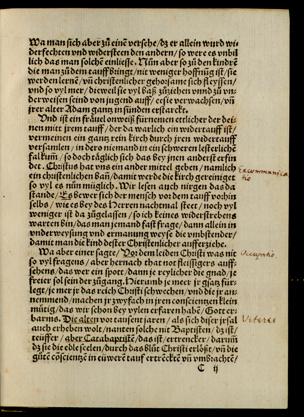 Wa man sich aber zů einẽ versehe / dz er allein wurd wi-
derfechten vnd widersteen den andern / so were es vnbil
lich das man solchẽ einliesse. Nůn aber so zů den kindrẽ
die man zů dem tauff bringt / nit weniger hoffnũg ist / sie
werden lernẽ / vñ christenlicher gehorsame sich fleyssen /
vnd so vyl mer / dieweil sie vyl baß zůziehen vnnd zů vn-
derweisen seind von jugend auff / ee sie verwachsen / vñ
jrer alter Adam gantz in sünden erstarckt.
Vnd ist ein frauel on weiß fürnemen ettlicher der dei-
nen mit jrem tauff / der da warlich ein widertauff ist /
vermeinen ein gantz rein kirch durch jren widertauff
versamlen / in dero niemand in ein schwerer lesterliche
fal kum / so doch täglich das bey jnen anderst erfin
det. Christus hat vns ein ander mittel geben / namlich
ein christenlichen bañ / damit werde die kirch gereiniget
so vyl es nün müglich. Wir lesen auch nirgen das da
stande / Es bewer sich der mensch vor dem tauff vorhin
selbs / wie es bey des Herren nachtmal steet / noch vyl
weniger ist da zůgelassen / so ich keines widerstrebens
warten bin / das man jemand fast frage / dann allein in
vnderweysung vnd ermanung weyse die vmbstender /
damit man die kind dester Christenlicher aufferziehe.
Wa aber einer sagte / Vor dem leiden Christi was nit
so vyl fragens / aber hernach that not fleissigers auff-
sehens / das wer ein spott / dann je reylicher die gnad / je
freier sol sein der zůgang. Die tramb je mer jr gsatz für
lege / je mer jr das reich Christi schwechen / vnd die jr an-
nemmend / machen jr zwyfach in jren conscientzen klein
mütig / das wir schon bey vylen erfaren habẽ / Gott er-
barms. Die alten vor tausent jaren / als sich diser jrsal
auch erheben wolt / nanten solche nit Baptisten / dz ist /
teüffer / aber Catabaptistẽ / das ist / ertrencker / darum̃
dz sie die edle seelen / durch das blůt Christi erlößt / vñ die
gůtẽ cõscientz in eüwerẽ tauff ertrẽcktẽ vñ vmbbrachtẽ /
C ij
Excommunica
tio
Occupatio
Veteres